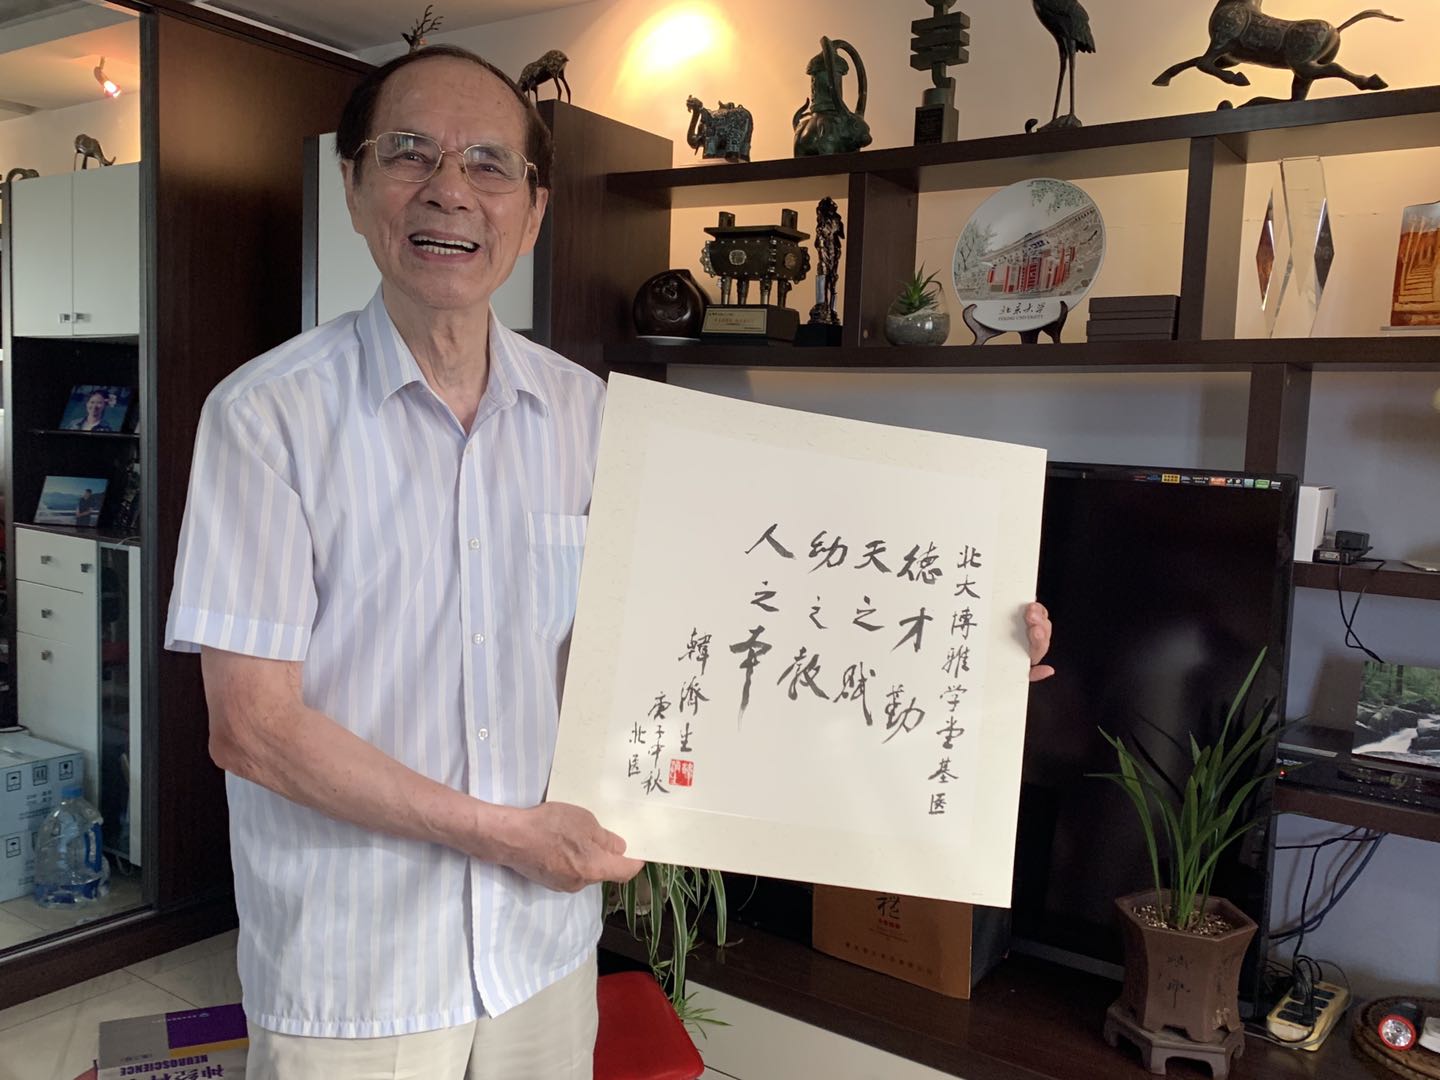 北大博雅学堂基医
德才勤
天之赋
幼之教
人之本
韓濟生
庚子中秋
北医
北京大学
PEKING UNIVERSITY
NEUROSCIENCE
神经科